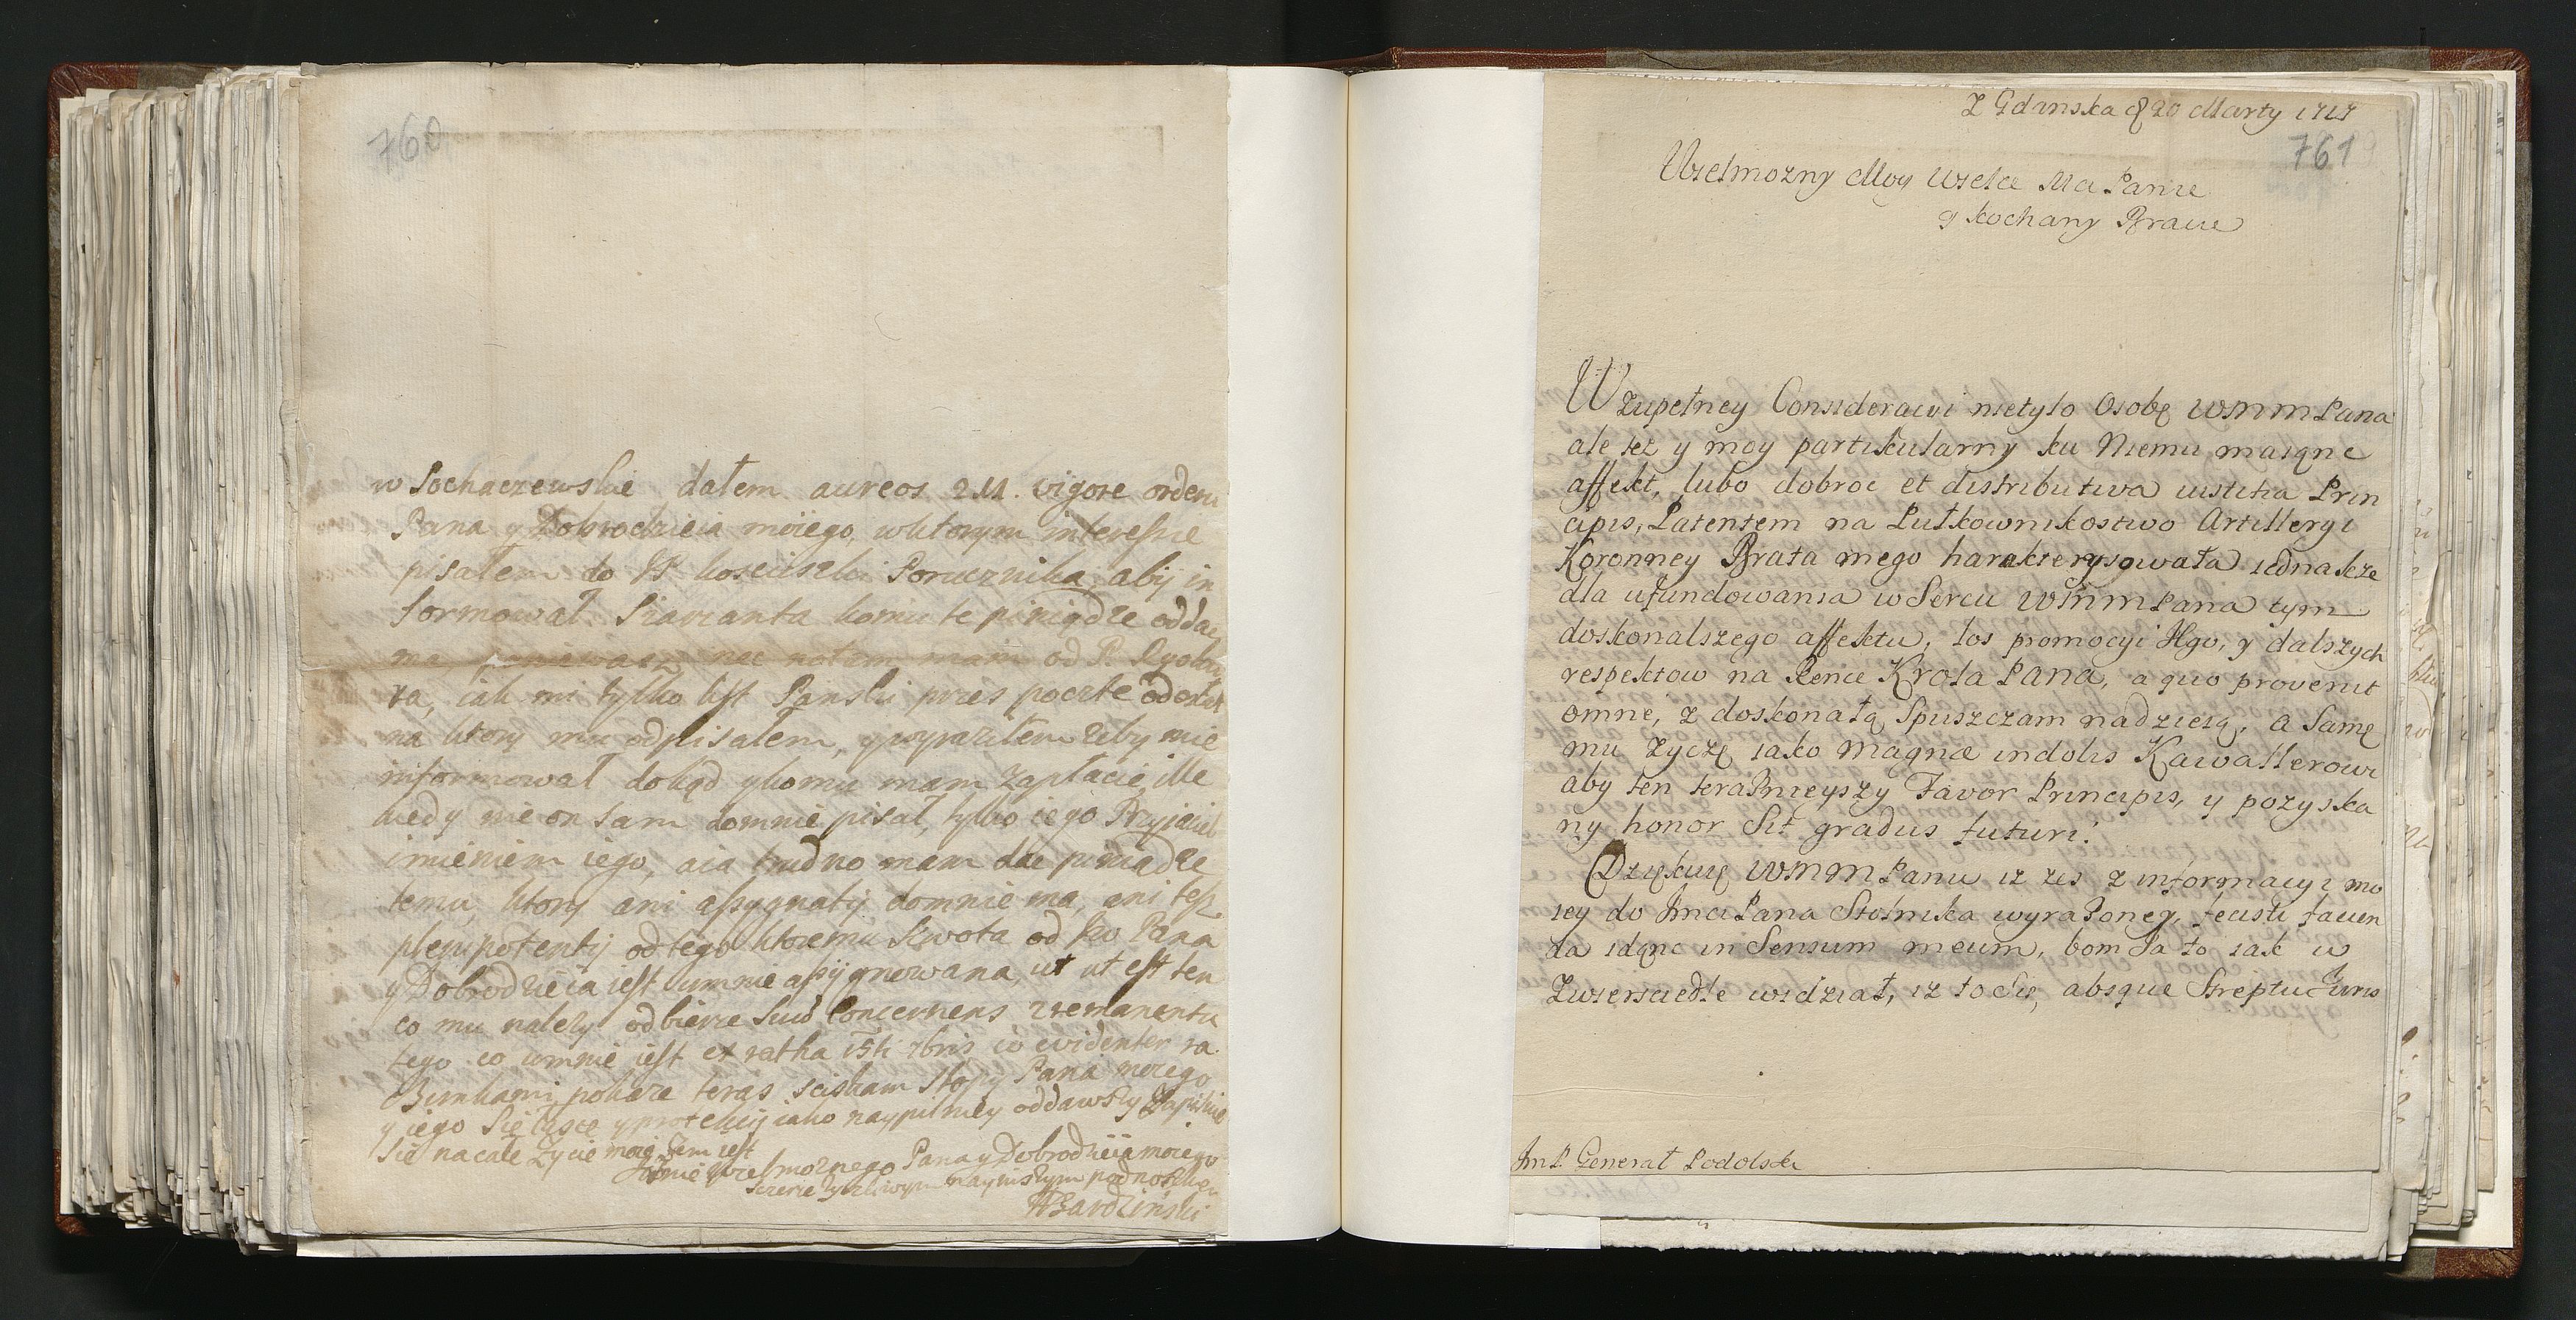 760
w Sochaczewskie dałem aureos 211. vigore ordern
Pana y Dobrodzieia moiego, wktorym interessie
pisałem do JP kosciuszki Porucznika aby in
formował Siarzanta komu te piniądze oddac
ma poniewasz nec notam mam od P.
ra, iak mi tylko list Panski przes poczte odesłał
na ktory mu odpisałem, y wyraziłem zeby mie
informował dokąd ykomu mam zapłacic, ille
kiedy nie on sam domnie pisał, tylko iego Przyiaciel
imieniem iego, aia trudno mam dac piniądze
temu, ktory ani assygnatij domnie ma, ani tesz
plenipotentij odtego ktoremu kwota od Pana
y Dobrodzieia iest umnie assygnowana, ut ut est ten
co mu nalezy odbierze suis concernens zremanentu
tego co umnie iest et ratha 15ti 7bris co evidenter ra
chunkami pokaze teras sciskam stopy Pana moiego
y iego Się łasce y protekcij iako naypilniey oddawszy Zapisuie
sie nacałe Zycie moie Zem iest
Wielmoznego Pana y Dobrodzieia moiego
szczerze zyczliwym nayniszym podnoszkiem
WBardzinski
Z Gdanska d 20 Marty 1717
761
Wielmozny Moy Wielce Mci Panie
y kochany Bracie
W Zupełney Consideracyi nietylo Osobę WMMPana
ale tez y moy partikularny ku Niemu maiąc
affekt, lubo dobroc et distributiva iustitia Prin
cipis, Patentem na Pułkownikostwo Artilleryi
Koronney Brata mego harakterysowała iednakze
dla ufundowania w Sercu WMMPana tym
doskonalszego affektu, los promocyi Jego, y dalszych
respektow na Ręnce Krola Pana, a quo provenit
omne, z doskonałą Spuszczam nadzieią, a Samę
mu zyczę iako magnæ indolis Kawallerowi
aby ten teraznieyszy Favor Principis, y pozyska
ny honor Sit gradus futuri.
Dziękuię WMMPanu iz zes z informacyi mo
iey do Jmci Pana Stolnika wyrazoney, fecisti facien
da idąc in Sensum meum, bom Ja to iak w
Zwierciedle widział, iz to Się, absque Streptu Juris
JmP. Generał Podolski